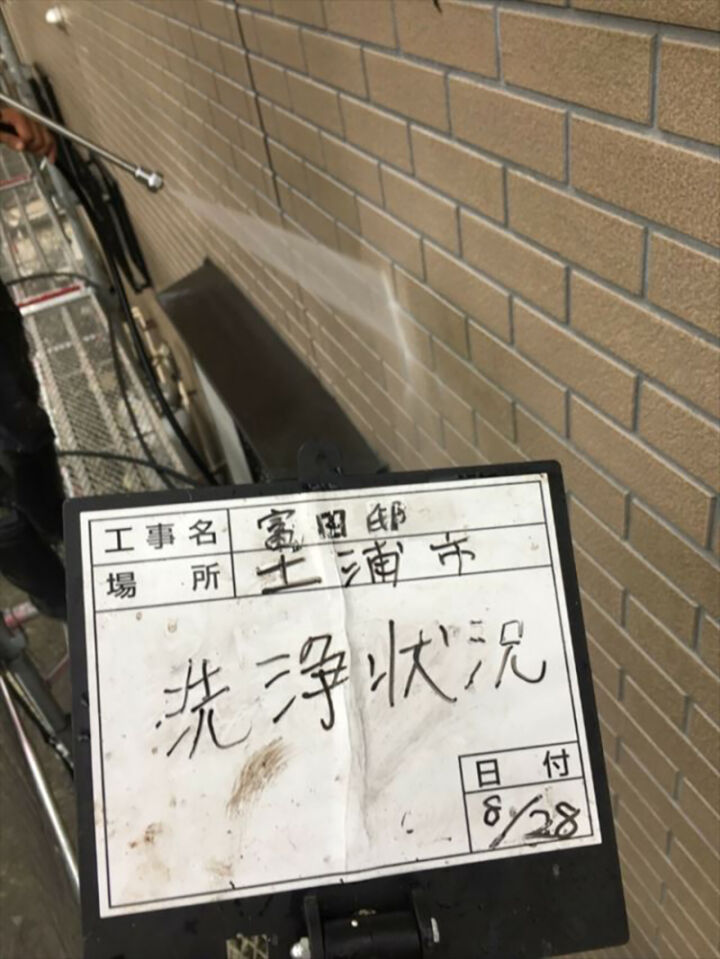 工事名 富田邸
場所 土浦市
洗浄状況
日付
8/28